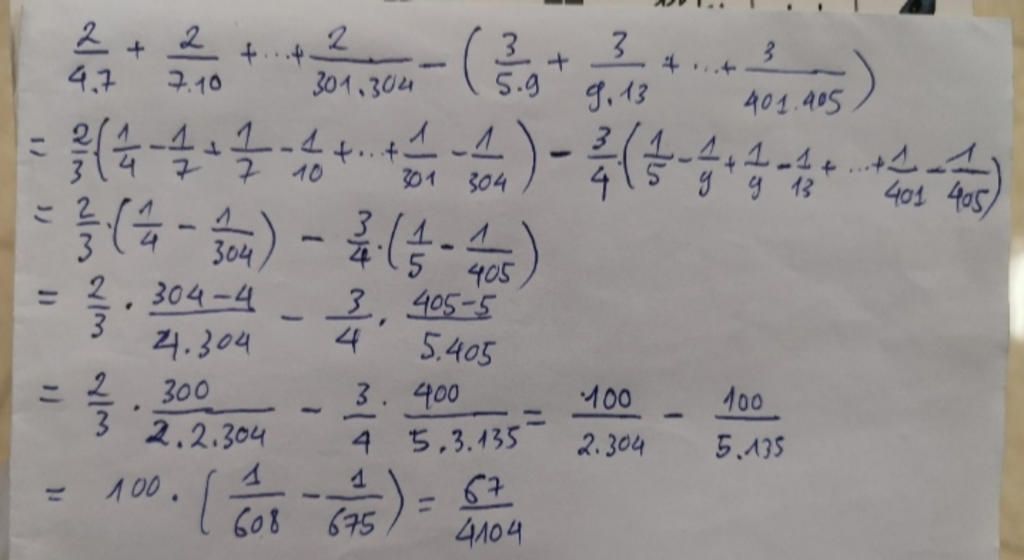 2/4.7 + 2/7.10 + ...+ 2/301.304 - (3/5.9 + 3/9.13 + ...+ 3/401.405)
= 2/3.(1/4 - 1/7 + 1/7 - 1/10 +...+ 1/301 - 1/304) - 3/4.(1/5 - 1/9 + 1/9 - 1/13 + ...+ 1/401 - 1/405)
= 2/3.(1/4 - 1/304) - 3/4.(1/5 - 1/405)
= 2/3 . 304-4/4.304 - 3/4 . 405-5/5.405
= 2/3 . 300/2.2.304 - 3/4 . 400/5.3.135 = 100/2.304 - 100/5.135
= 100.(1/608 - 1/675) = 67/4104